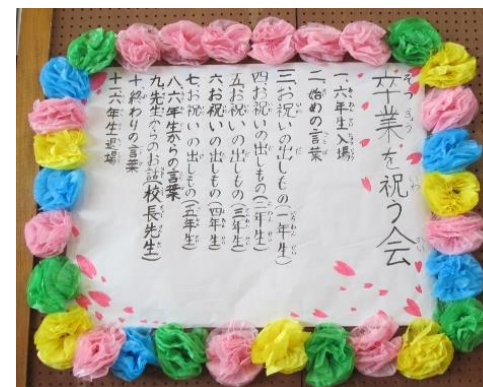 卒業を祝う会
一、六年生入場
二、始めの言葉
三、お祝いの出しもの(一年生)
四、お祝いの出しもの(二年生)
五、お祝いの出しもの(三年生)
六、お祝いの出しもの(四年生)
七、お祝いの出しもの(五年生)
八、六年生からの言葉
九、先生からのお話(校長先生)
十、終わりの言葉
十一、六年生退場